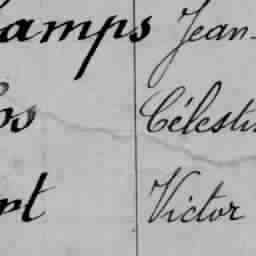 amps Jean-
Célesti
rt Victor